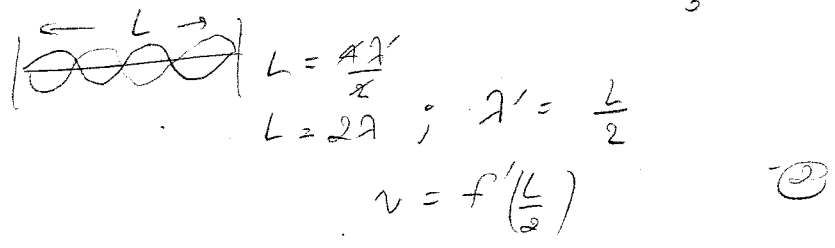 L
L = 4λ'/2
L = 2λ ; λ' = L/2
v = f'(L/2) -②